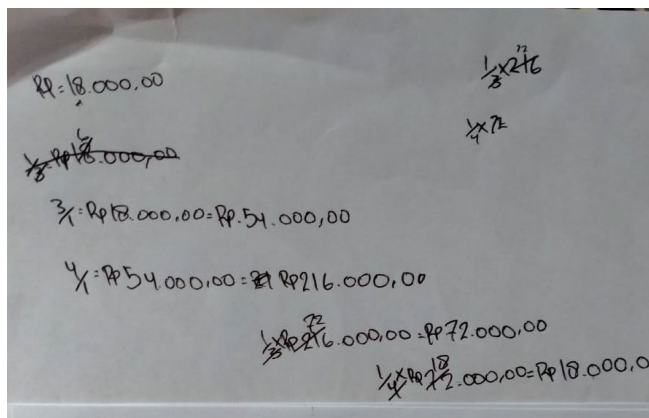 Rp = 18.000,00
1/3 × 216
72
1/4 × 72
1/3 Rp 18.000,00
6
3/1 = Rp 18.000,00 = Rp. 54.000,00
4/1 = Rp 54.000,00 = Rp 216.000,00
72
1/3 × Rp 216.000,00 = Rp 72.000,00
18
1/4 × Rp 72.000,00 = Rp 18.000,0